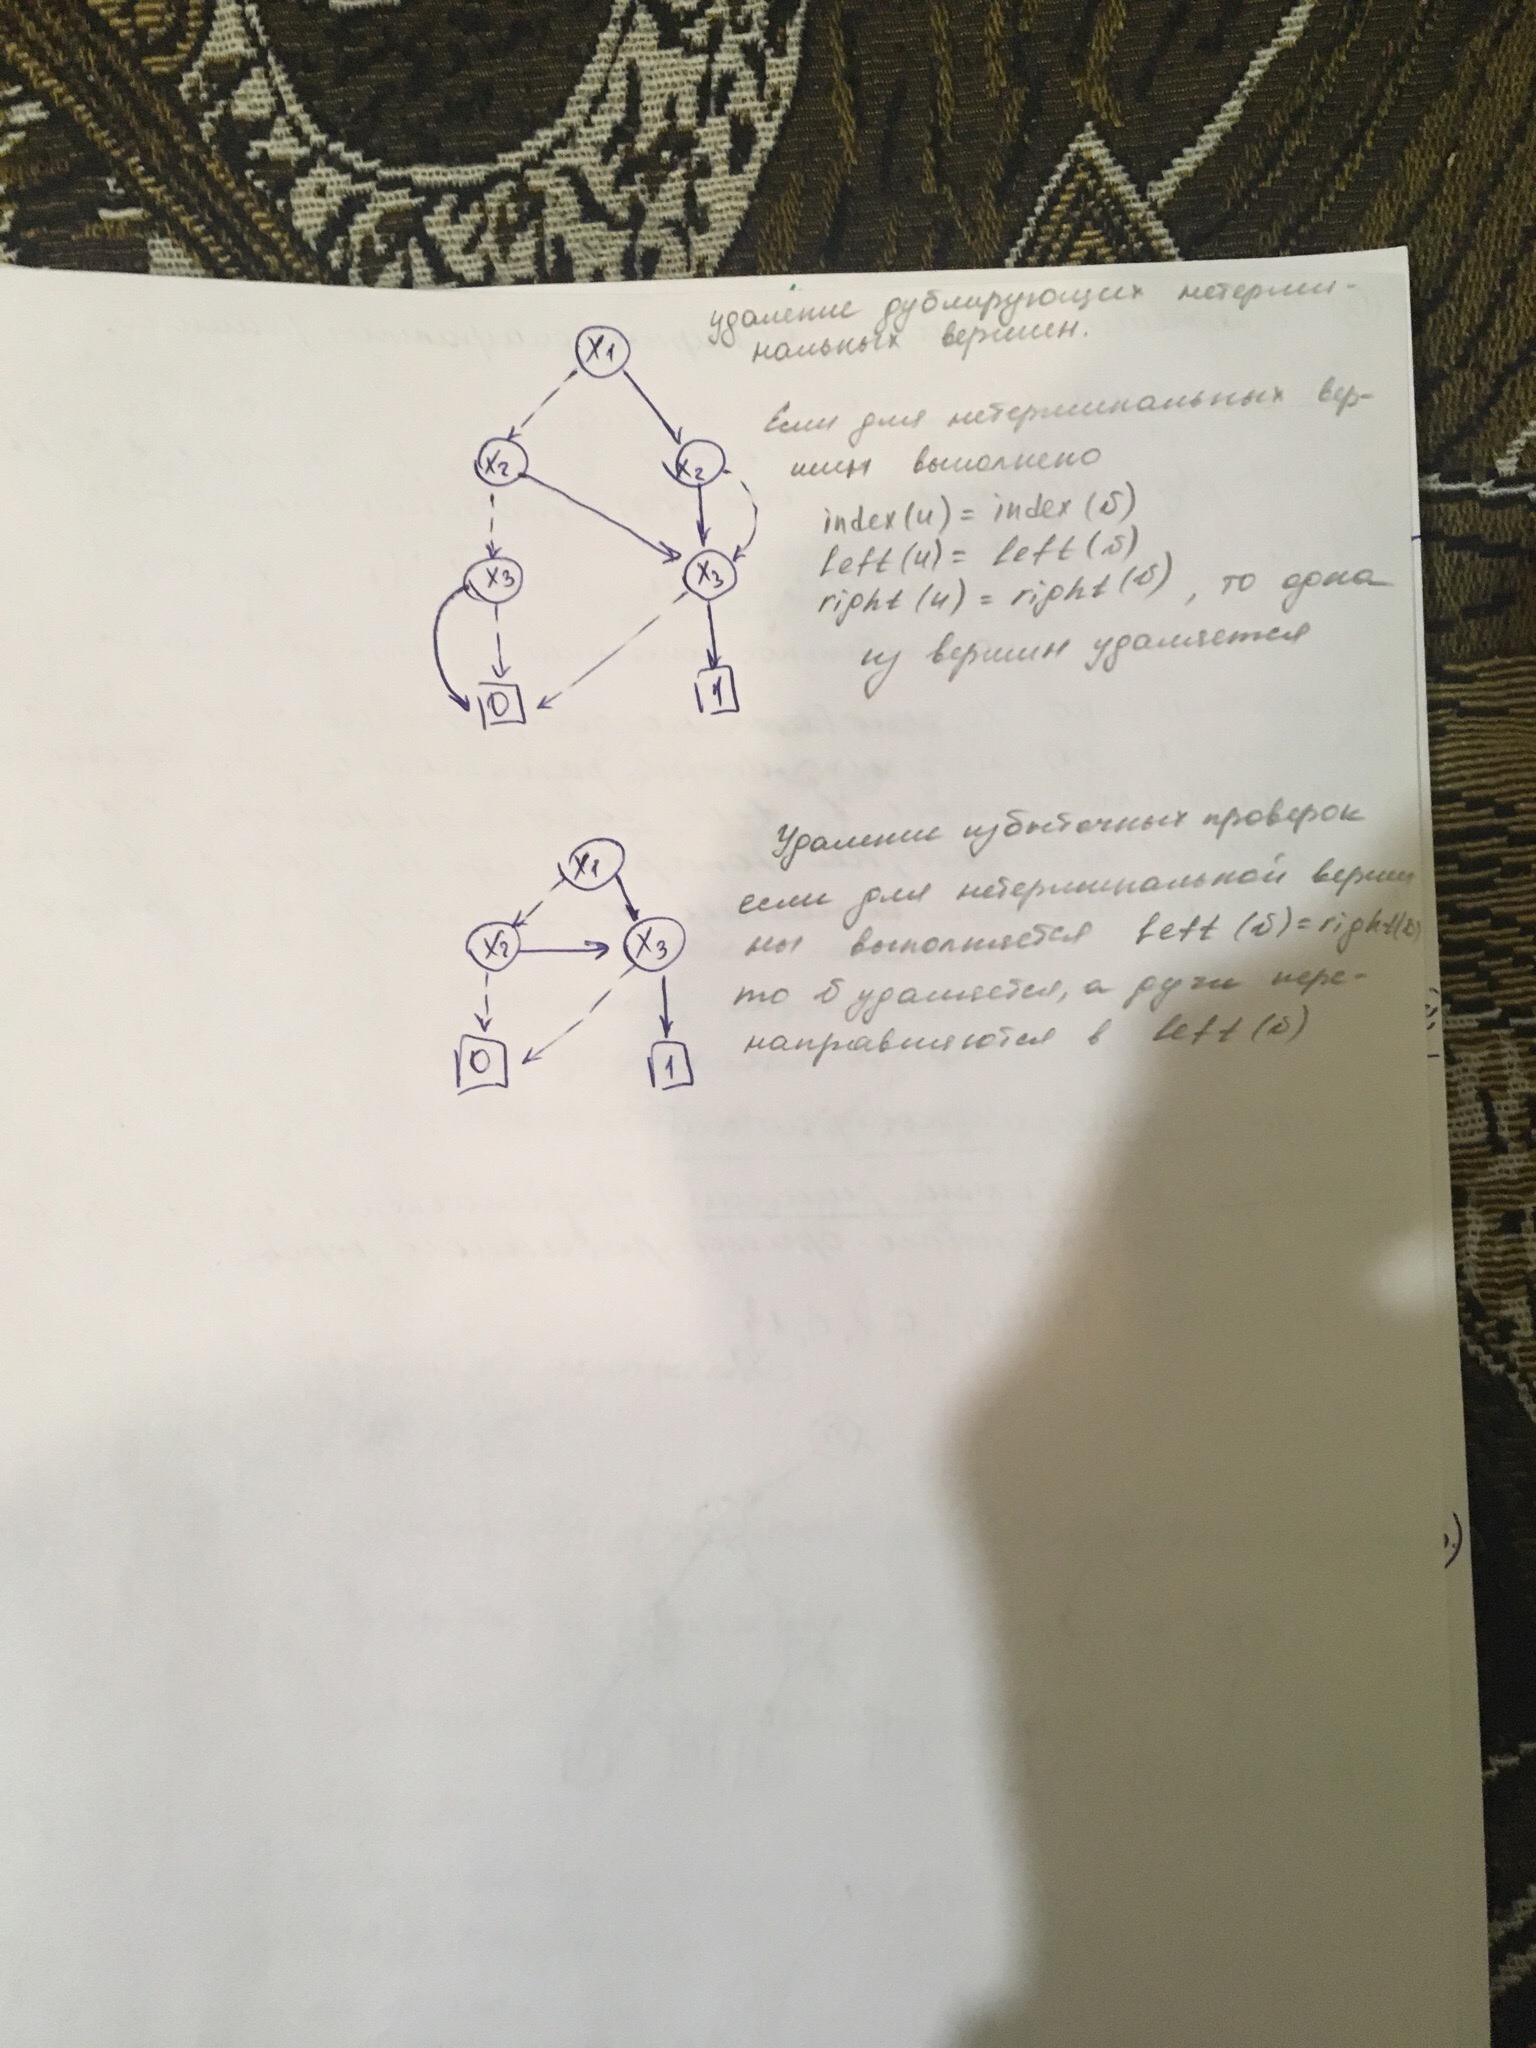 удаление дублирующих нетерми-
нальных вершин.
x1
Если для нетерминальных вер-
шин выполнено
x2 x2
index(u) = index(v)
left(u) = left(v)
right(u) = right(v), то одна
из вершин удаляется
x3 x3
0 1
Удаление избыточных проверок
если для нетерминальной верши
ны выполняется left(v)=right(v)
то v удаляется, а дуги пере-
направляются в left(v)
x1
x2 x3
0 1